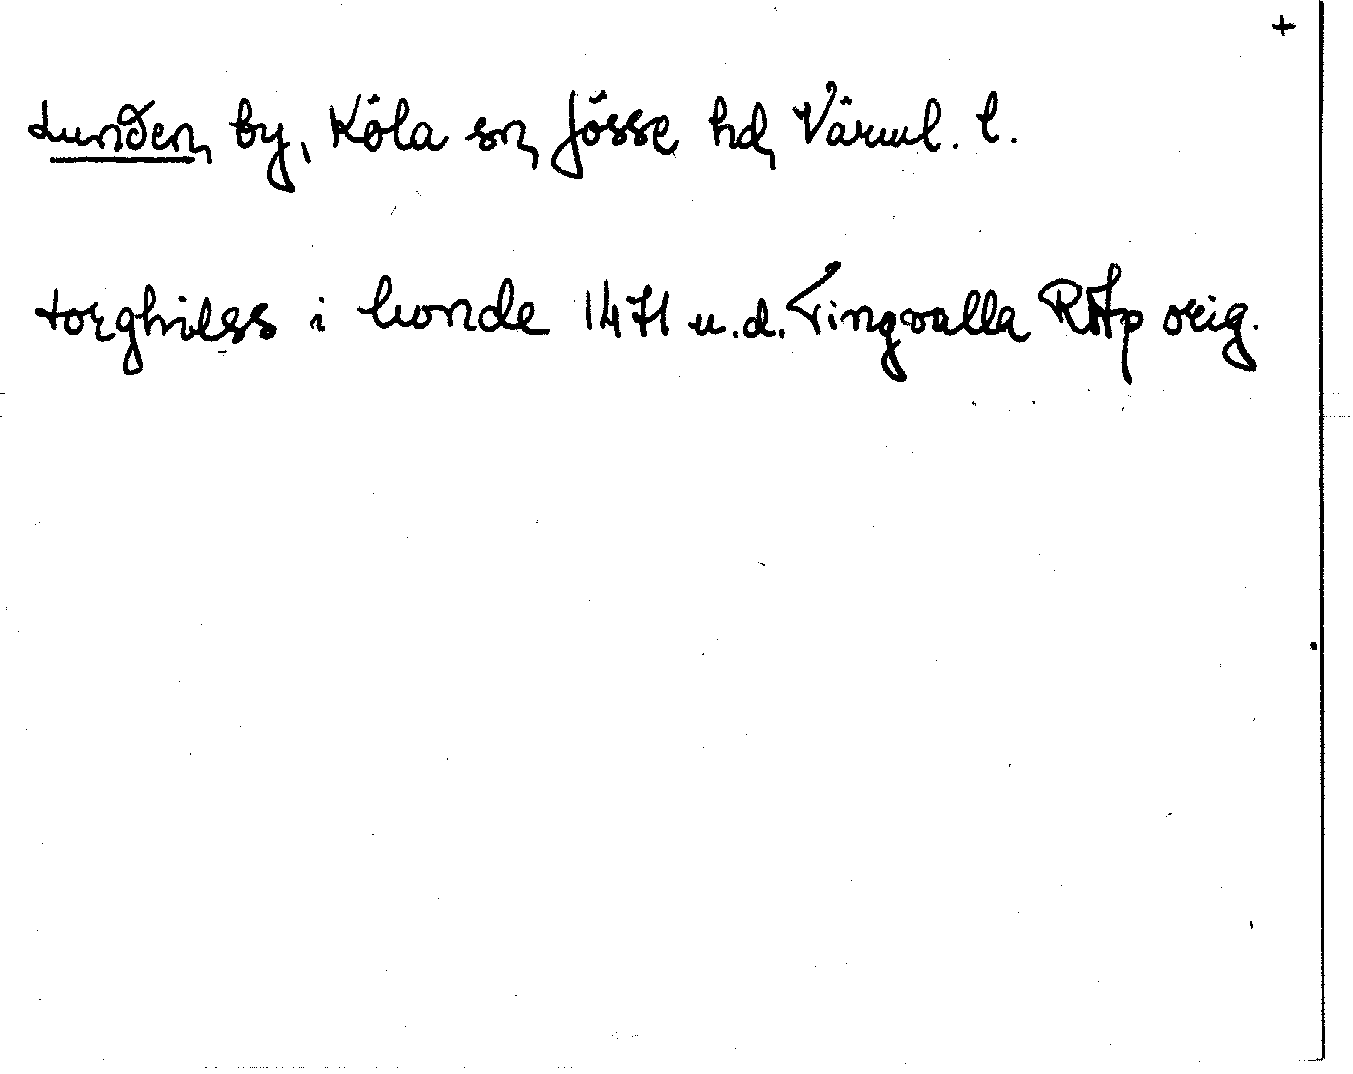 +
Lunden, by, Köla sn, Jösse hd, Värml. l.
torghilss i lwnde 1471 u.d. Tingvalla RAp orig.